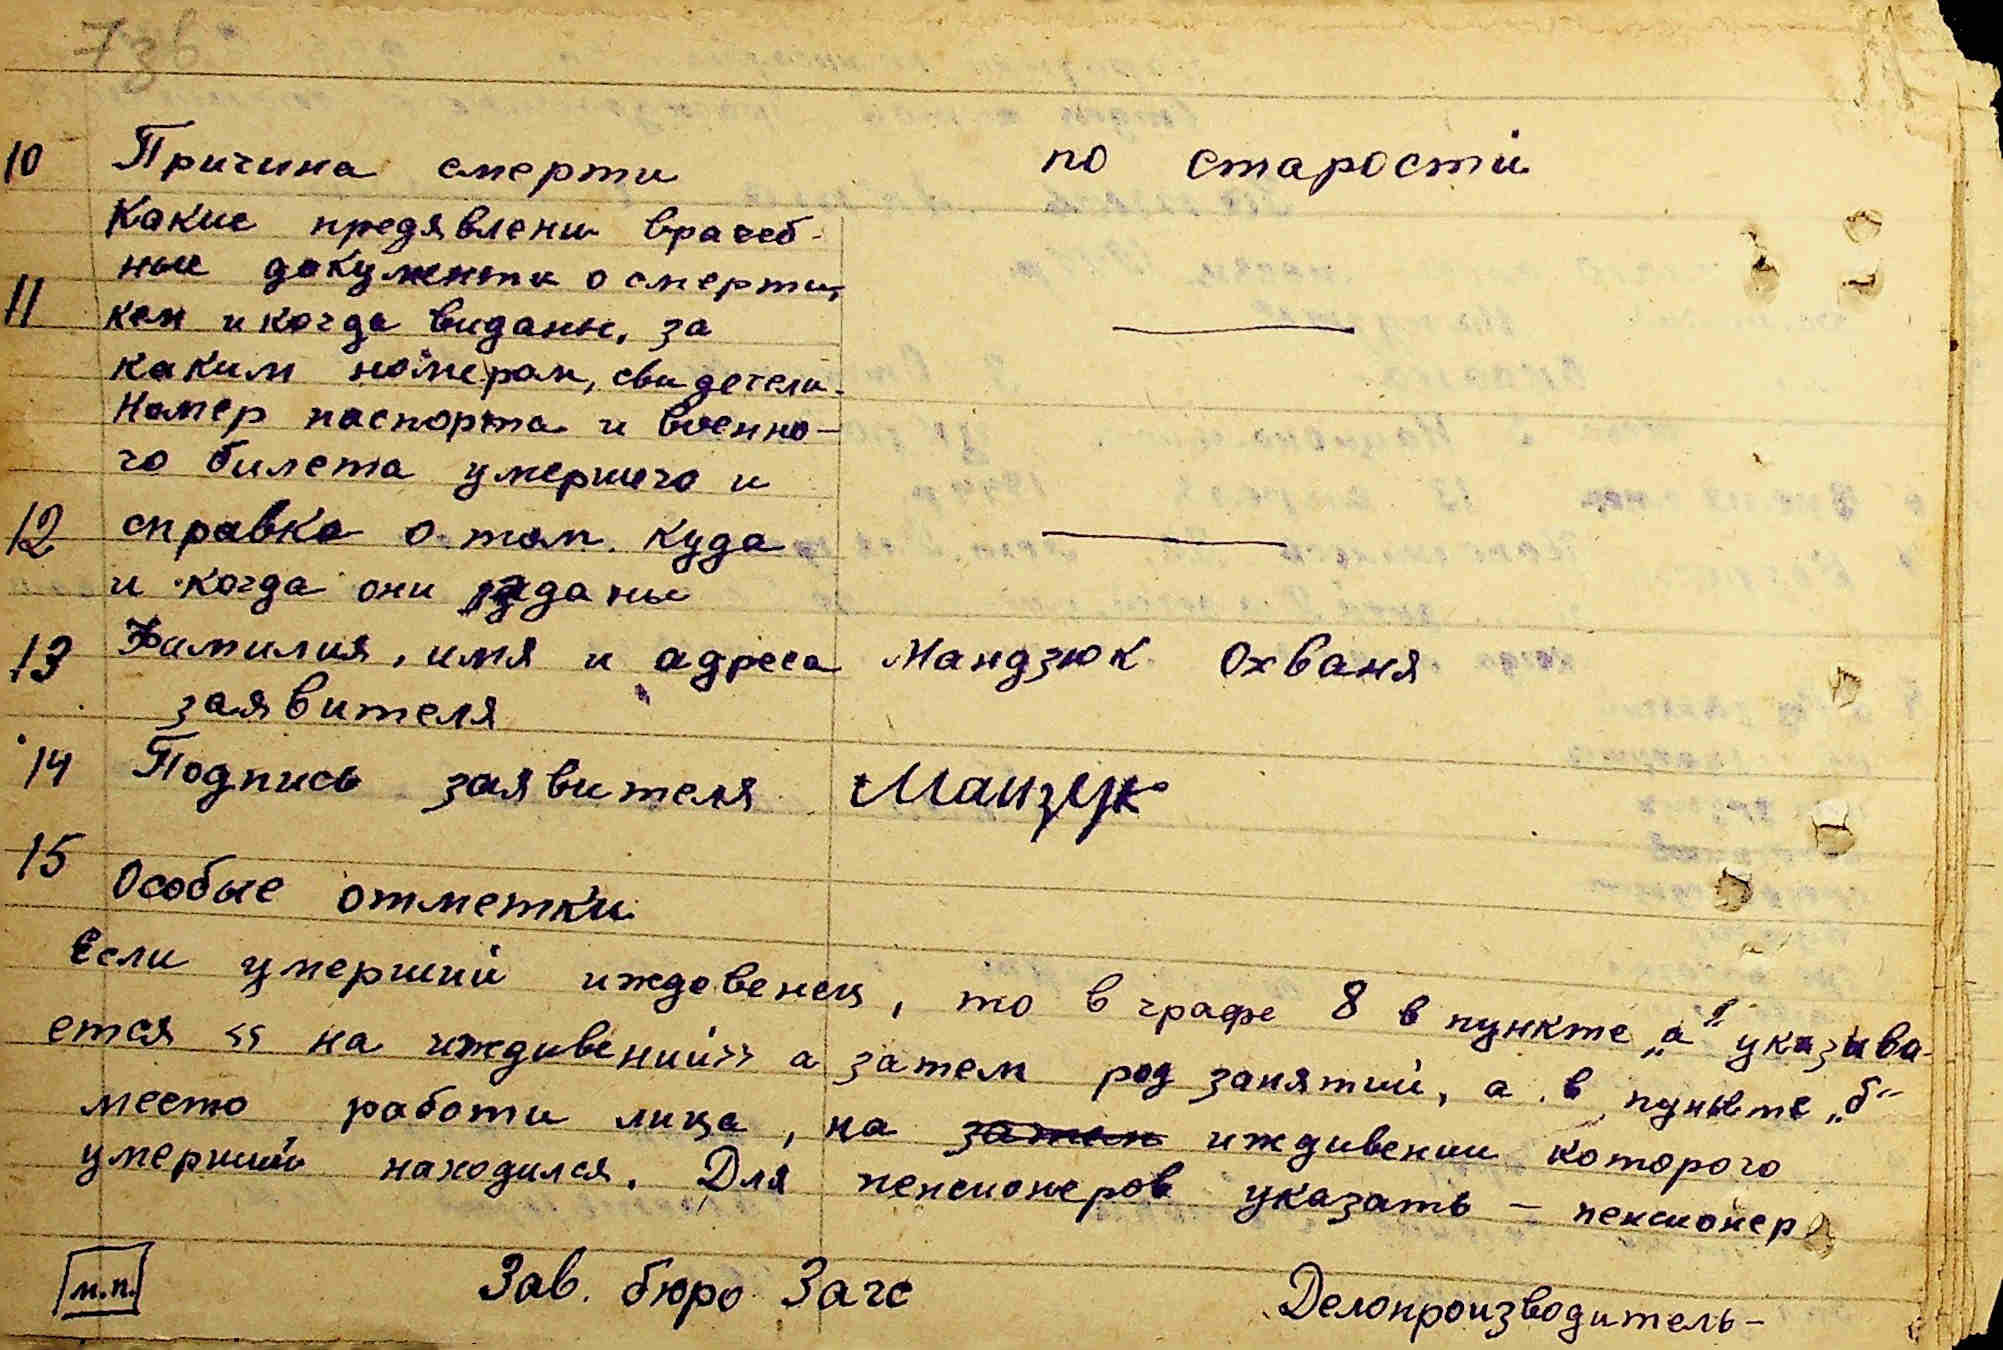 736
10 Причина смерти по старости
Какие предявлени врачеб-
ные документи о смерти,
11 кем и когда видани, за
каким номером, свидетели-
Номер паспорта и военно-
го билета умершего и
12 справка о том, куда
и когда они зданы
13 Фамилия, имя и адреса Мандзюк Охваня
заявителя
14 Подпись заявителя Манзук
15 Особые отметки
Если умерший иждевенец, то в графе 8 в пункте „а“ указыва-
ется « на иждивений» а затем род занятий, а в пункте „б“
место работи лица, на затем иждивении которого
умерший находился. Для пенсионеров указать – пенсионер
м.п. Зав. бюро Загс Делопроизводитель-